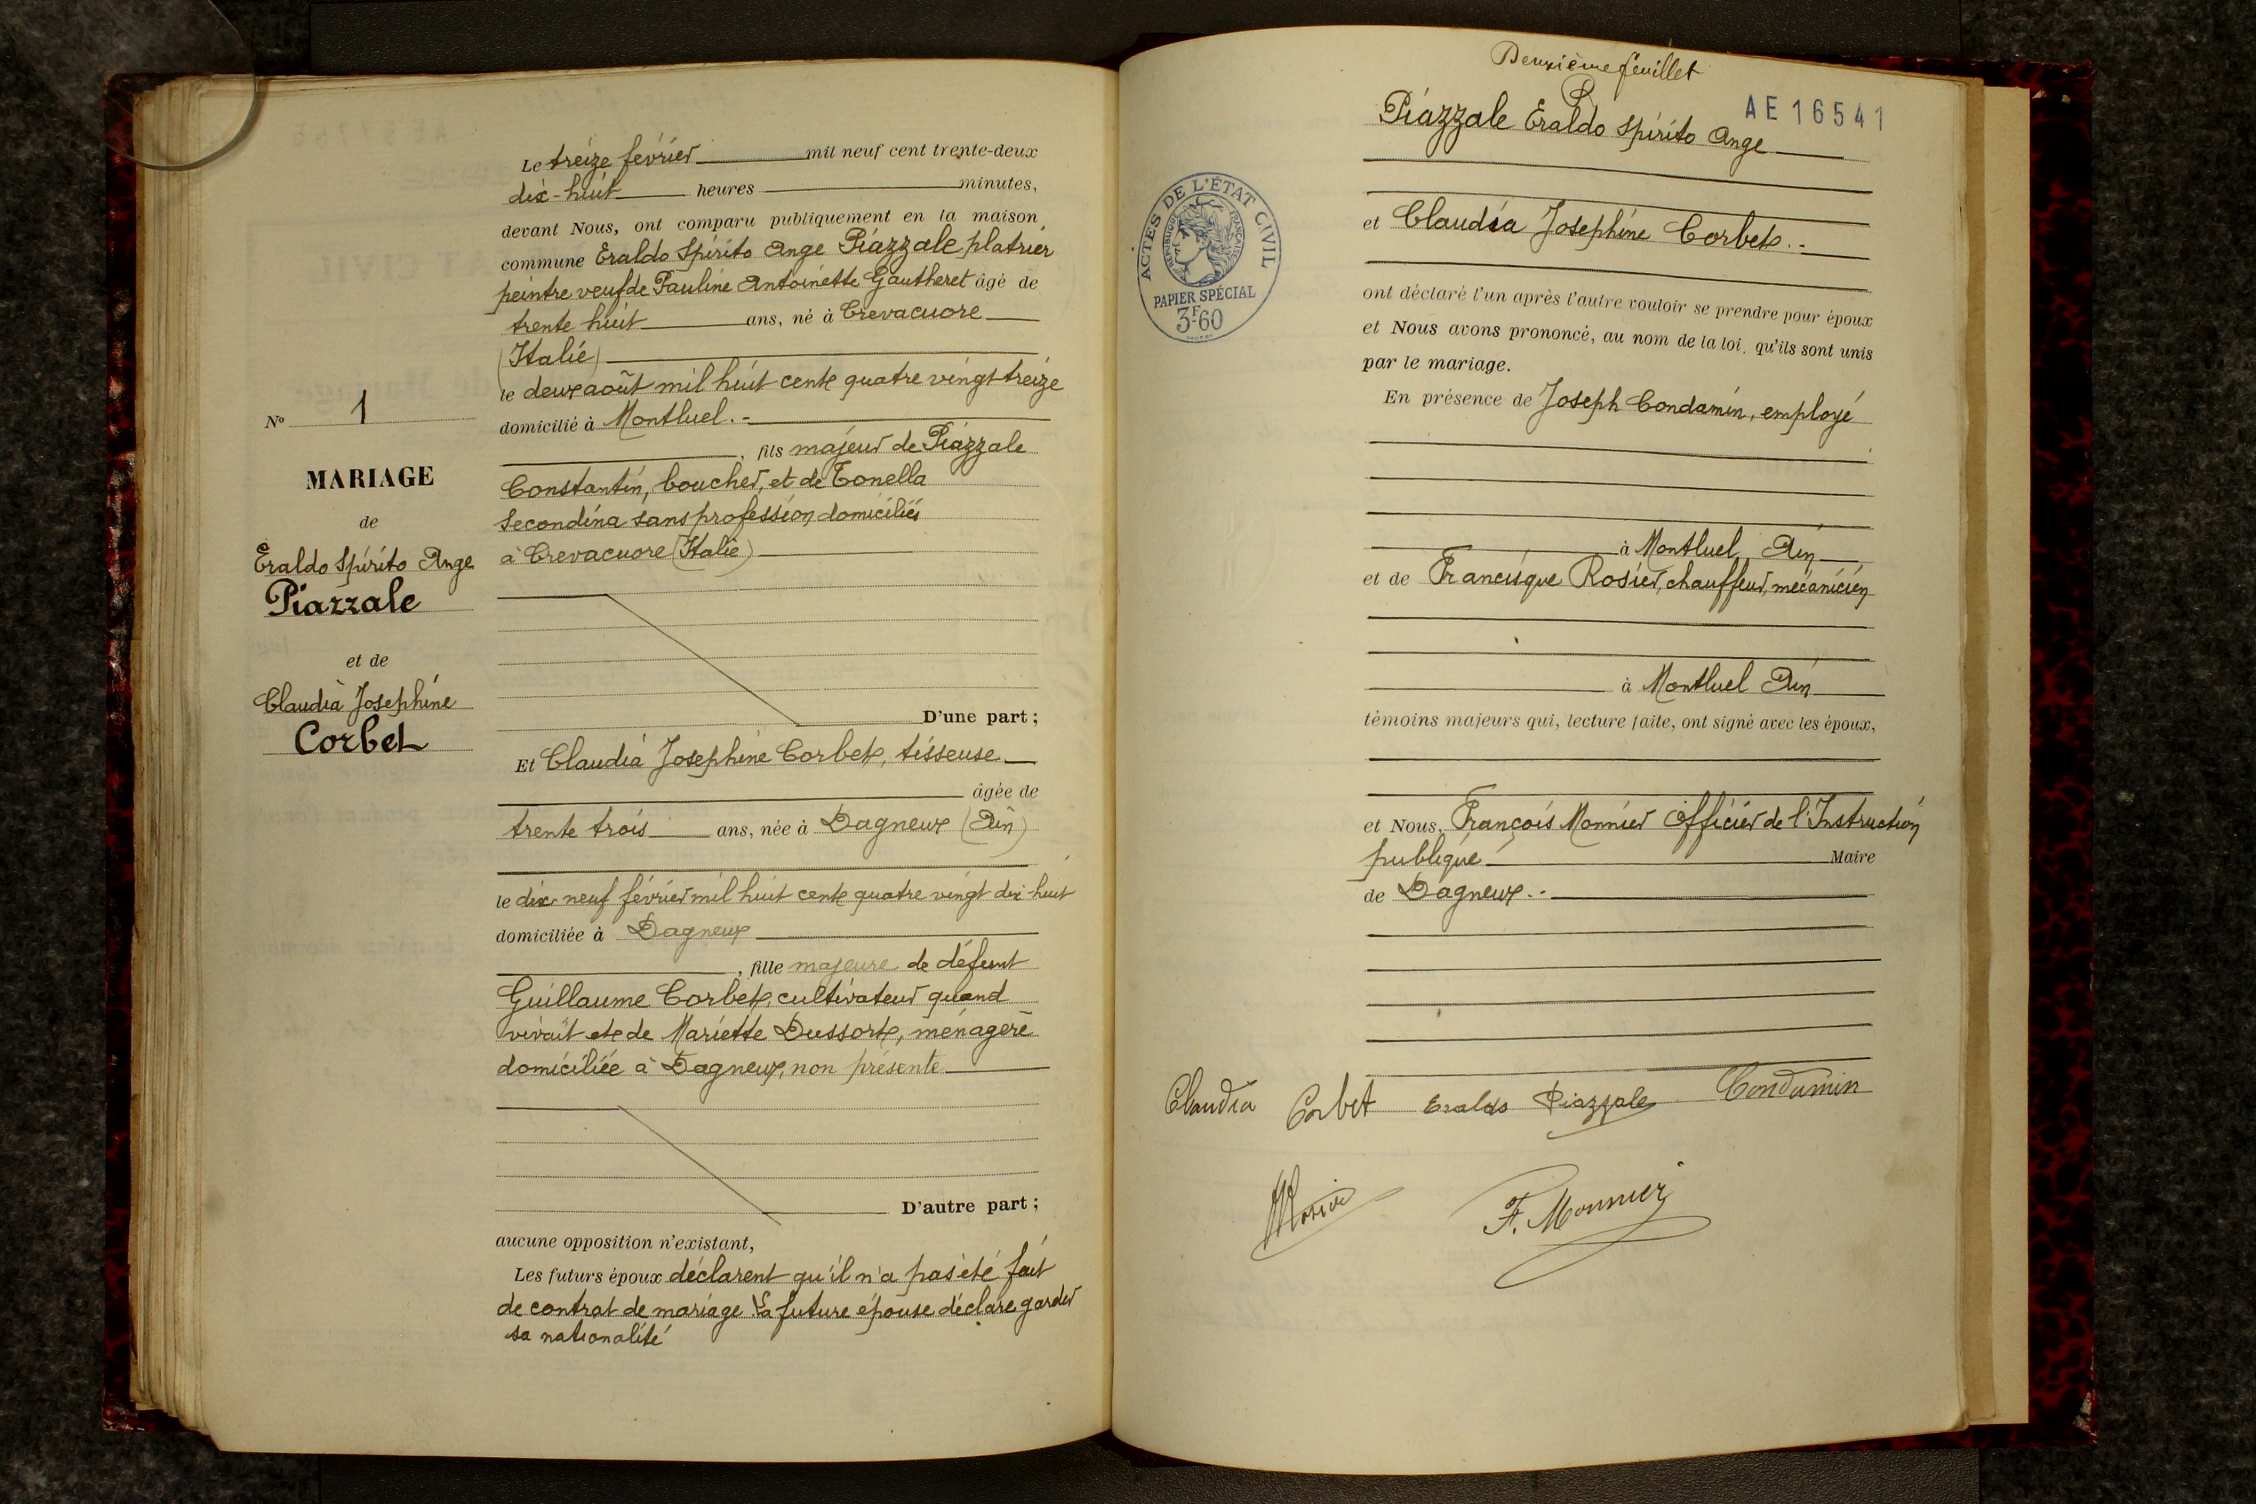 Nº 1
MARIAGE
de
Eraldo Spirito Ange
Piazzale
et de
Claudia Josephine
Corbet
Le treize février mil neuf cent trente-deux
dix-huit heures minutes,
devant Nous, ont comparu publiquement en la maison
commune Eraldo Spirito Ange Piazzale platrier
peintre veuf de Pauline Antoinette Gautheret âgé de
trente huit ans, né à Crevacuore
(Italie)
le deux août mil huit cent quatre vingt treize
domicilié à Montluel.-
, fils majeur de Piazzale
Constantin, boucher, et de Tonella
Secondina sans profession domiciliés
à Crevacuore (Italie)
D'une part ;
Et Claudia Josephine Corbet, tisseuse
âgée de
trente trois ans, née à Dagneux (Ain)
le dix neuf février mil huit cent quatre vingt dix-huit
domiciliée à Dagneux
, fille majeure de défunt
Guillaume Corbet, cultivateur quand
vivait et de Mariette Dussort, ménagère
domiciliée à Dagneux, non présente
D'autre part ;
aucune opposition n'existant,
Les futurs époux déclarent qu'il n'a pas été fait
de contrat de mariage La future épouse déclare garder
sa nationalité
Deuxième feuillet
AE 16541
Piazzale Eraldo Spirito Ange
et Claudia Josephine Corbet.-
ACTES DE L'ÉTAT CIVIL
RÉPUBLIQUE FRANÇAISE
PAPIER SPÉCIAL
3F60
ont déclaré l'un après l'autre vouloir se prendre pour époux
et Nous avons prononcé, au nom de la loi, qu'ils sont unis
par le mariage.
En présence de Joseph Condamin, employé
à Montluel Ain
et de Francisque Rosier, chauffeur, mécanicien
à Montluel Ain
témoins majeurs qui, lecture faite, ont signé avec les époux,
et Nous, François Monnier Officier de l'Instruction
publique Maire
de Dagneux.-
Claudia Corbet Eraldo Piazzale Condamin
F. Monnier